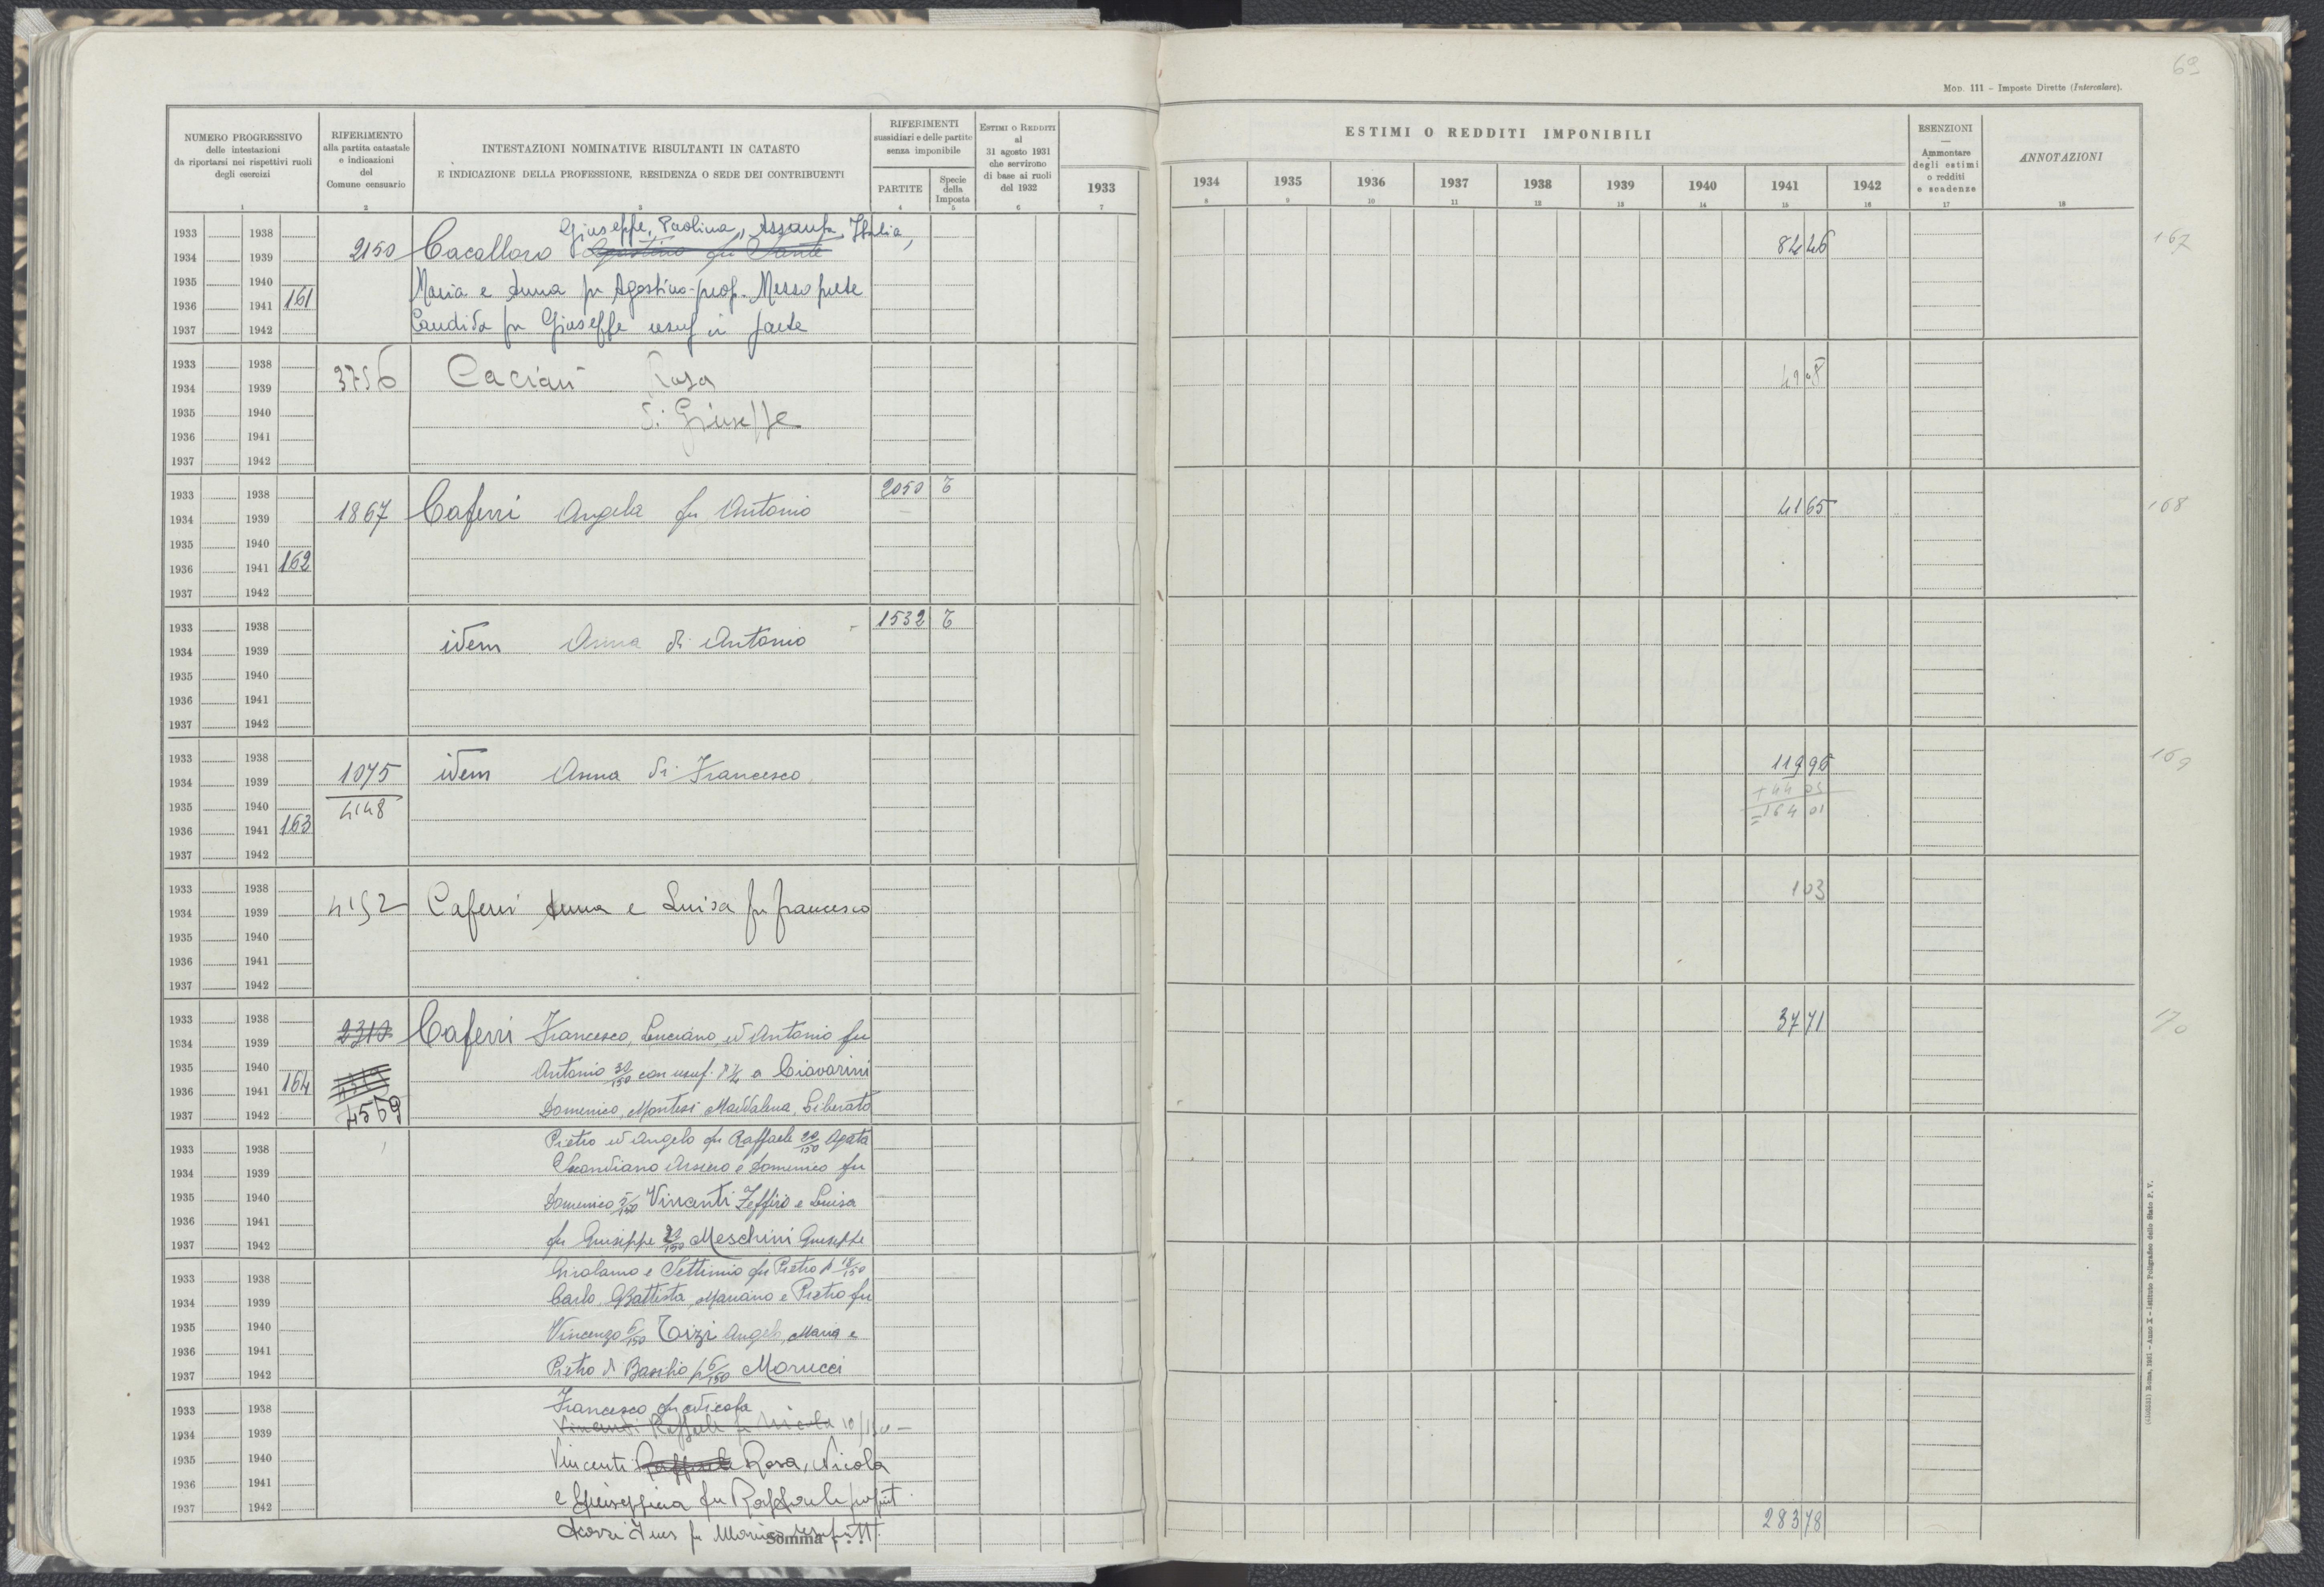 69
Mod. 111 - Imposte Dirette (Intercalare).
NUMERO PROGRESSIVO
delle intestazioni
da riportarsi nei rispettivi ruoli
degli esercizi
RIFERIMENTO
alla partita catastale
e indicazioni
del
Comune censuario
INTESTAZIONI NOMINATIVE RISULTANTI IN CATASTO
E INDICAZIONE DELLA PROFESSIONE, RESIDENZA O SEDE DEI CONTRIBUENTI
RIFERIMENTI
sussidiari e delle partite
senza imponibile
PARTITE
Specie
della
Imposta
ESTIMI O REDDITI
al
31 agosto 1931
che servirono
di base ai ruoli
del 1932
1933
ESTIMI O REDDITI IMPONIBILI
1934 1935 1936 1937 1938 1939 1940 1941 1942
ESENZIONI
Ammontare
degli estimi
o redditi
e scadenze
ANNOTAZIONI
1 2 3 4 5 6 7 8 9 10 11 12 13 14 15 16 17 18
Giuseppe, Paolina, Assunta, Italia,
1933 1938
2150 Cacalloro Agostino fu Sante 8446 167
1934 1939
1935 1940
Maria e Anna fu Agostino - prop.
1936 1941 161
Candida fu Giuseppe usuf in parte
1937 1942
1933 1938
3756 Caciari Rosa
1934 1939
di Giuseppe
1935 1940
1936 1941
1937 1942
1933 1938
2050 T
1867 Caferri Angela fu Antonio 4165 168
1934 1939
1935 1940
1936 1941 162
1937 1942
1933 1938
1532 T
idem Anna di Antonio
1934 1939
1935 1940
1936 1941
1937 1942
1933 1938
1075 idem Anna di Francesco 11996 169
1934 1939
+ 44 05
1935 1940
4148
= 164 01
1936 1941 163
1937 1942
1933 1938
103
4152 Caferri Anna e Luisa fu Francesco
1934 1939
1935 1940
1936 1941
1937 1942
1933 1938
2312 Caferri Francesco, Luciano, ed Antonio fu 3771 170
1934 1939
1935 1940
Antonio 30/150 con usuf. di 1/2 a Ciavarini
1936 1941 164
4569 Domenico, Montesi Maddalena, Liberato
1937 1942
1933 1938
Pietro ed Angelo fu Raffaele 20/150 Agata
Secondiano Arsenio e Domenico fu
1934 1939
1935 1940
Domenico 5/150 Vincenti Zeffiro e Luisa
1936 1941
fu Giuseppe 20/150 Meschini Giuseppe
1937 1942
1933 1938
Girolamo e Settimio fu Pietro p 18/150
1934 1939
Carlo, GBattista, Mariano e Pietro fu
1935 1940
Vincenzo 6/150 Tizi Angelo, Maria e
1936 1941
Pietro di Basilio p 6/150 Morucci
1937 1942
1933 1938
Francesco fu Nicola
Vincenti Raffaele fu Nicola
1934 1939
1935 1940
Vincenti Raffaele Rosa, Nicola
1936 1941
e Giuseppina fu Raffaele propriet.
1937 1942
fu Monica usufrutt.
Somma . . . 28378
(4100251) Roma, 1931 - Anno X - Istituto Poligrafico dello Stato P. V.